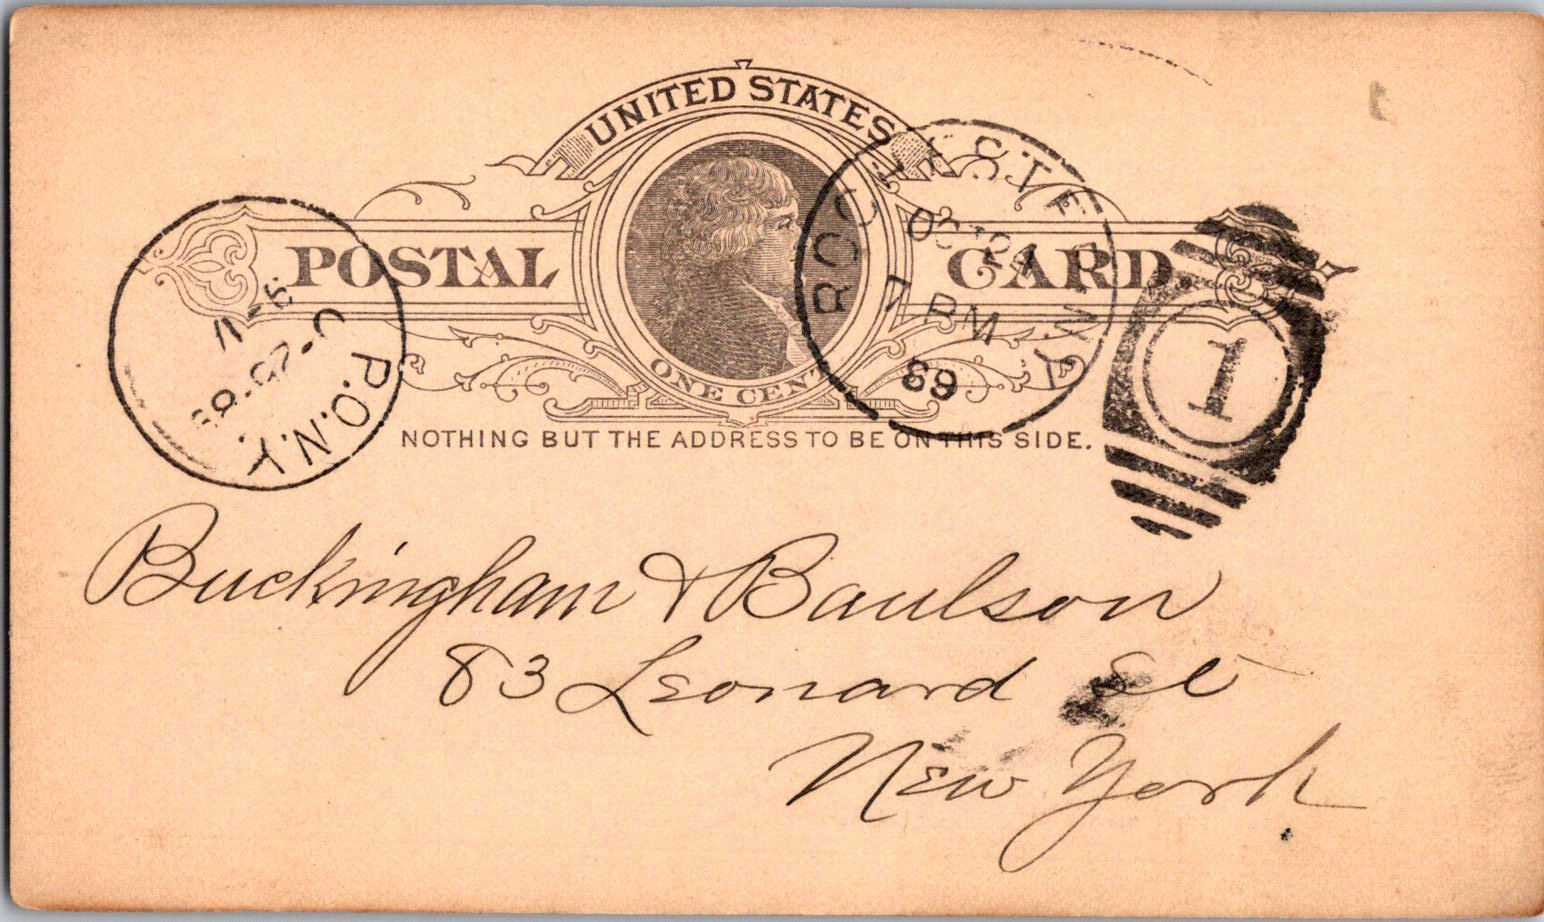 UNITED STATES
POSTAL CARD.
ONE CENT
NOTHING BUT THE ADDRESS TO BE ON THIS SIDE.
ROCHESTER N.Y.
OCT 24
7 PM
89
1
P.O.N.Y.
Buckingham & Paulson
83 Leonard St
New York